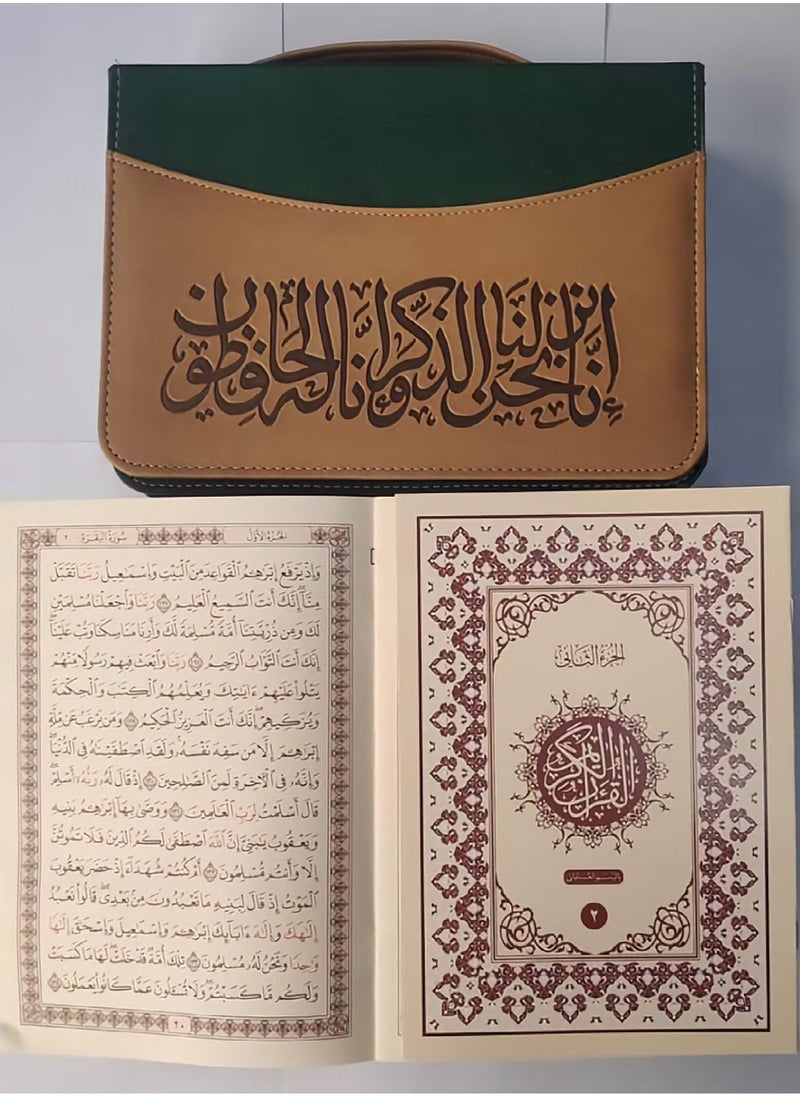 إنا نحن نزلنا الذكر وإنا له لحافظون
سُورَةُ البَقَرَة ٢
الجُزءُ الأَوَّل
وَإِذْ يَرْفَعُ إِبْرَٰهِـۧمُ الْقَوَاعِدَ مِنَ الْبَيْتِ وَإِسْمَٰعِيلُ رَبَّنَا تَقَبَّلْ
مِنَّآ إِنَّكَ أَنتَ السَّمِيعُ الْعَلِيمُ ١٢٧ رَبَّنَا وَاجْعَلْنَا مُسْلِمَيْنِ
لَكَ وَمِن ذُرِّيَّتِنَآ أُمَّةً مُّسْلِمَةً لَّكَ وَأَرِنَا مَنَاسِكَنَا وَتُبْ عَلَيْنَآ
إِنَّكَ أَنتَ التَّوَّابُ الرَّحِيمُ ١٢٨ رَبَّنَا وَابْعَثْ فِيهِمْ رَسُولًا مِّنْهُمْ
يَتْلُوا۟ عَلَيْهِمْ ءَايَٰتِكَ وَيُعَلِّمُهُمُ الْكِتَٰبَ وَالْحِكْمَةَ
وَيُزَكِّيهِمْ إِنَّكَ أَنتَ الْعَزِيزُ الْحَكِيمُ ١٢٩ وَمَن يَرْغَبُ عَن مِّلَّةِ
إِبْرَٰهِـۧمَ إِلَّا مَن سَفِهَ نَفْسَهُۥ وَلَقَدِ اصْطَفَيْنَٰهُ فِي الدُّنْيَا
وَإِنَّهُۥ فِي الْـَٔاخِرَةِ لَمِنَ الصَّٰلِحِينَ ١٣٠ إِذْ قَالَ لَهُۥ رَبُّهُۥٓ أَسْلِمْ
قَالَ أَسْلَمْتُ لِرَبِّ الْعَٰلَمِينَ ١٣١ وَوَصَّىٰ بِهَآ إِبْرَٰهِـۧمُ بَنِيهِ
وَيَعْقُوبُ يَٰبَنِيَّ إِنَّ اللَّهَ اصْطَفَىٰ لَكُمُ الدِّينَ فَلَا تَمُوتُنَّ
إِلَّا وَأَنتُم مُّسْلِمُونَ ١٣٢ أَمْ كُنتُمْ شُهَدَآءَ إِذْ حَضَرَ يَعْقُوبَ
الْمَوْتُ إِذْ قَالَ لِبَنِيهِ مَا تَعْبُدُونَ مِنۢ بَعْدِي قَالُوا۟ نَعْبُدُ
إِلَٰهَكَ وَإِلَٰهَ ءَابَآئِكَ إِبْرَٰهِـۧمَ وَإِسْمَٰعِيلَ وَإِسْحَٰقَ إِلَٰهًا
وَٰحِدًا وَنَحْنُ لَهُۥ مُسْلِمُونَ ١٣٣ تِلْكَ أُمَّةٌ قَدْ خَلَتْ لَهَا مَا كَسَبَتْ
وَلَكُم مَّا كَسَبْتُمْ وَلَا تُسْـَٔلُونَ عَمَّا كَانُوا۟ يَعْمَلُونَ ١٣٤
٢٠
الجزء الثاني
القرآن الكريم
بالرسم العثماني
٢